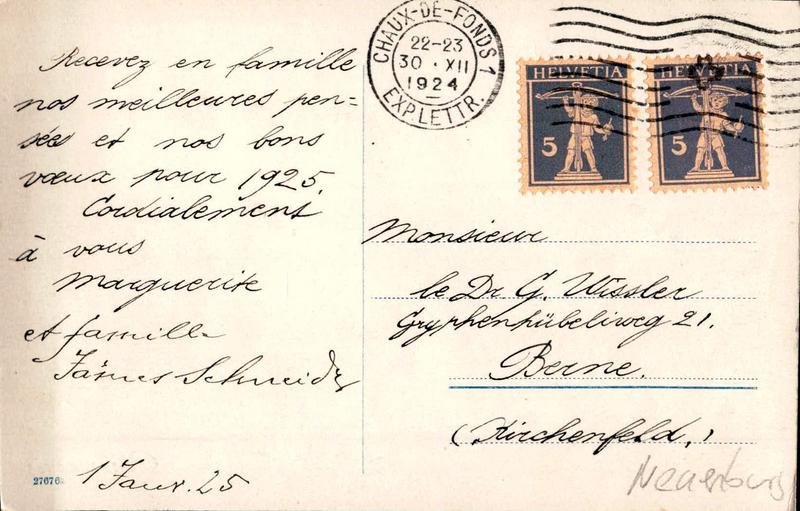 Recevez en famille
nos meilleures pen=
sées et nos bons
vœux pour 1925.
Cordialement
à vous
Marguerite
et famille
James Schneider
1 Janv. 25
27676
CHAUX-DE-FONDS 1
22-23
30·XII
1924
EXP. LETTR.
HELVETIA
5
HELVETIA
5
Monsieur
le Dr G. Wissler
Gryphenhübeliweg 21.
Berne.
(Kirchenfeld.)